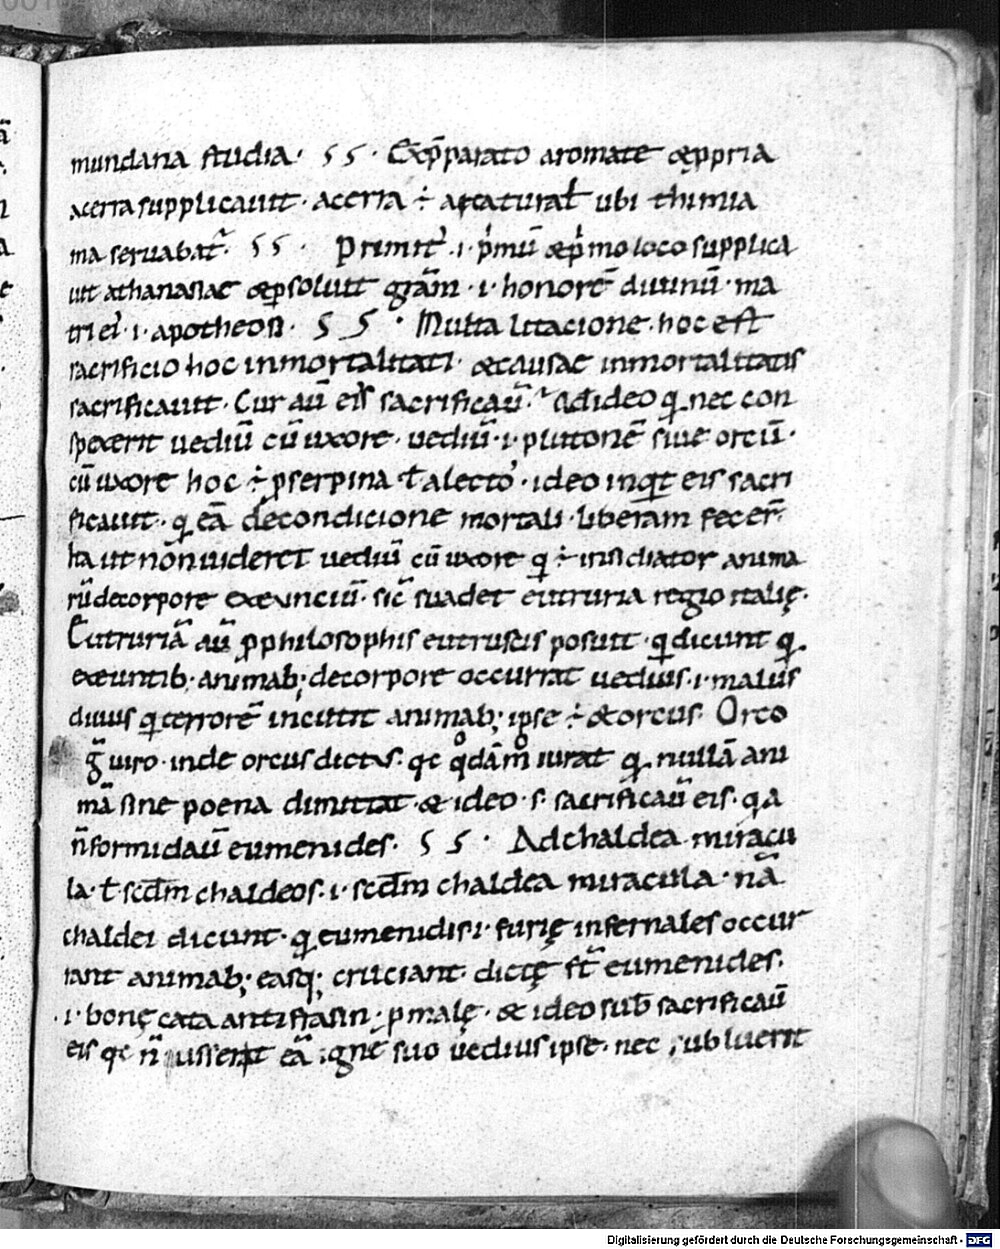 mundana studia· 55 · Exp̄parato aromate ęppria
acerra supplicauit· acerra ÷ arcaturał ubi thimia
ma seruabat᷑· 55 · Primit᷒ ·i· p̄mū & p̄mo loco supplica
uit athanasiae & ꝑsoluit grām ·i· honorē diuinū· ma
tri ei᷒ ·i· apotheosi· 55 · Multa litacione· hoc est
sacrificio hoc inmortalitati· & causae inmortalitatis
sacrificauit· Cur aū eis sacrificaū· Adideo q nec con
spexerit uediū cū uxore· uediū ·i· plutonē siue orcū·
cū uxore hoc ÷ pserpina ł alecto· ideo inqt eis sacri
ficauit· q eā de condicione mortali liberam fecer̄
ha ut non uideret uediū cū uxore q ÷ insidiator anima
rū de corpore exeunciū· sic suadet eutruria regio italię·
Eutruriā aū ꝓ philosophis eutruscis posuit· q dicunt q
exeuntib; animab; de corpore occurrat uedius ·i· malus
diuus q terrorē incutit animab; ipse ÷ & orcus· Orco
g̅ uiro· inde orcus dictus· qe qdām iurat q nullā ani
mā sine poena dimittat· & ideo ·s· sacrificaū eis· qa
n̄ formidaū eumenides· 55 · Ad chaldea miracu
la· ł scdm chaldeos ·i· scdm chaldea miracula· nā
chaldei dicunt· q eumenidis ·i· furię infernales occur
rant animab; easq; cruciant· dictę st̄ eumenides·
·i· bonę cata antifrasin· ꝓ malę· & ideo sub sacrificaū
eis qe n̄ iussent eā igne suo uedius ipse· nec subluerit
Digitalisierung gefördert durch die Deutsche Forschungsgemeinschaft - DFG